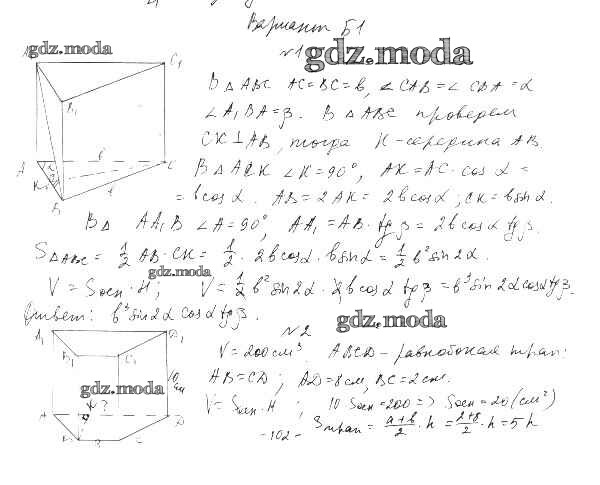 Вариант Б1
gdz.moda
№1 gdz.moda
C₁
B₁
В △ ABC AC=BC=b, ∠CAB=∠CBA=α
∠A₁BA=β. В △ ABC проведем
CK⊥AB, тогда K-середина AB.
A K B C b
В △ ACK ∠K=90°, AK=AC·cos α=
=bcosα. AB=2AK=2bcosα; CK=bsinα.
В △ AA₁B ∠A=90°, AA₁=AB·tgβ=2bcosα tgβ.
S△ABC = 1/2 AB·CK= 1/2 · 2bcosα·bsinα= 1/2 b²sin2α.
gdz.moda
V=Sосн·H; V= 1/2 b²sin2α·2bcosα tgβ=b³sin2αcosαtgβ.
Ответ: b³sin2α cosα tgβ.
№2 gdz.moda
A₁ D₁
B₁ C₁
V=200см³. ABCD-равнобокая трап:
10 см
AB=CD; AD=8см, BC=2см.
gdz.moda
V=Sосн·H; 10Sосн=200 => Sосн=20(см²)
A K ? D
B C
-102- Sтрап= a+b/2 ·h = 2+8/2 ·h=5h